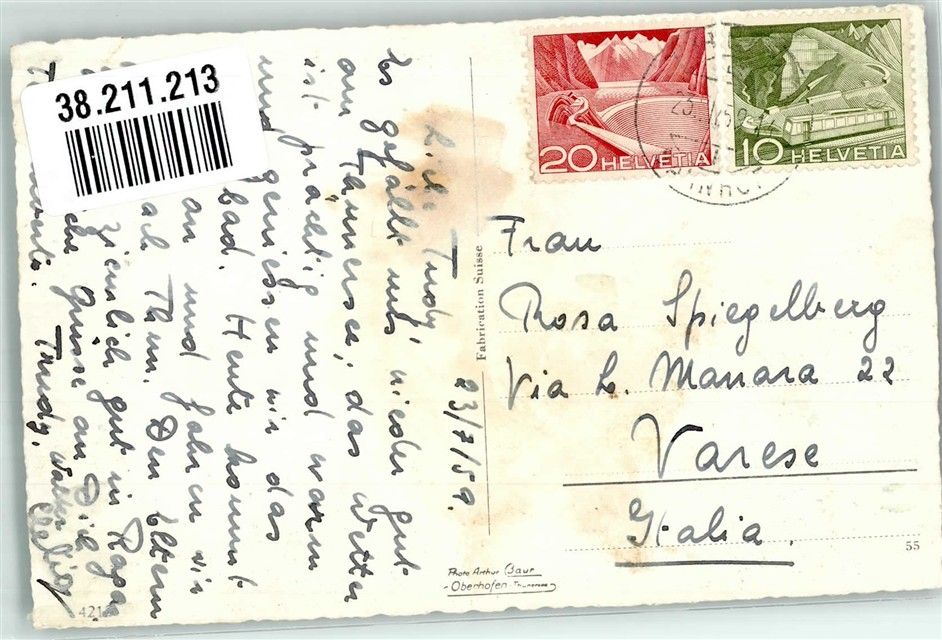 38.211.213
20 HELVETIA
10 HELVETIA
23/7/59.
Liebe Trudy,
Es gefällt uns wieder gut
am Thunersee, das Wetter
ist prächtig und warm
und geniessen wir das
bad. Heute kommt
an und fahren wir
ach Thun. Den Eltern
ziemlich gut in Ragaz
che Grüsse an Dich
Trudy, Walter
Fabrication Suisse
Frau
Rosa Spiegelberg
Via L. Manara 22
Varese
Italia.
55
Photo Arthur Baur
Oberhofen Thunersee
421